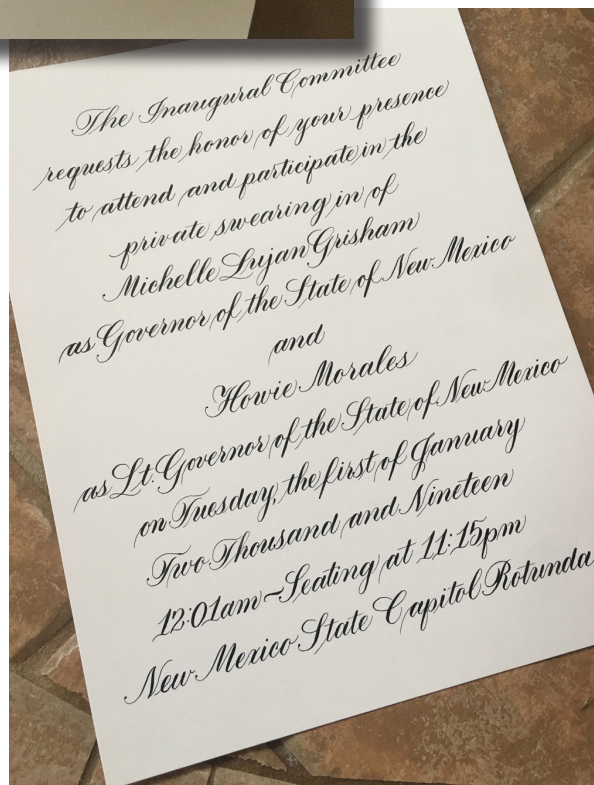 The Inaugural Committee
requests the honor of your presence
to attend and participate in the
private swearing in of
Michelle Lujan Grisham
as Governor of the State of New Mexico
and
Howie Morales
as Lt. Governor of the State of New Mexico
on Tuesday, the first of January
Two Thousand and Nineteen
12:01am ~ Seating at 11:15pm
New Mexico State Capitol Rotunda